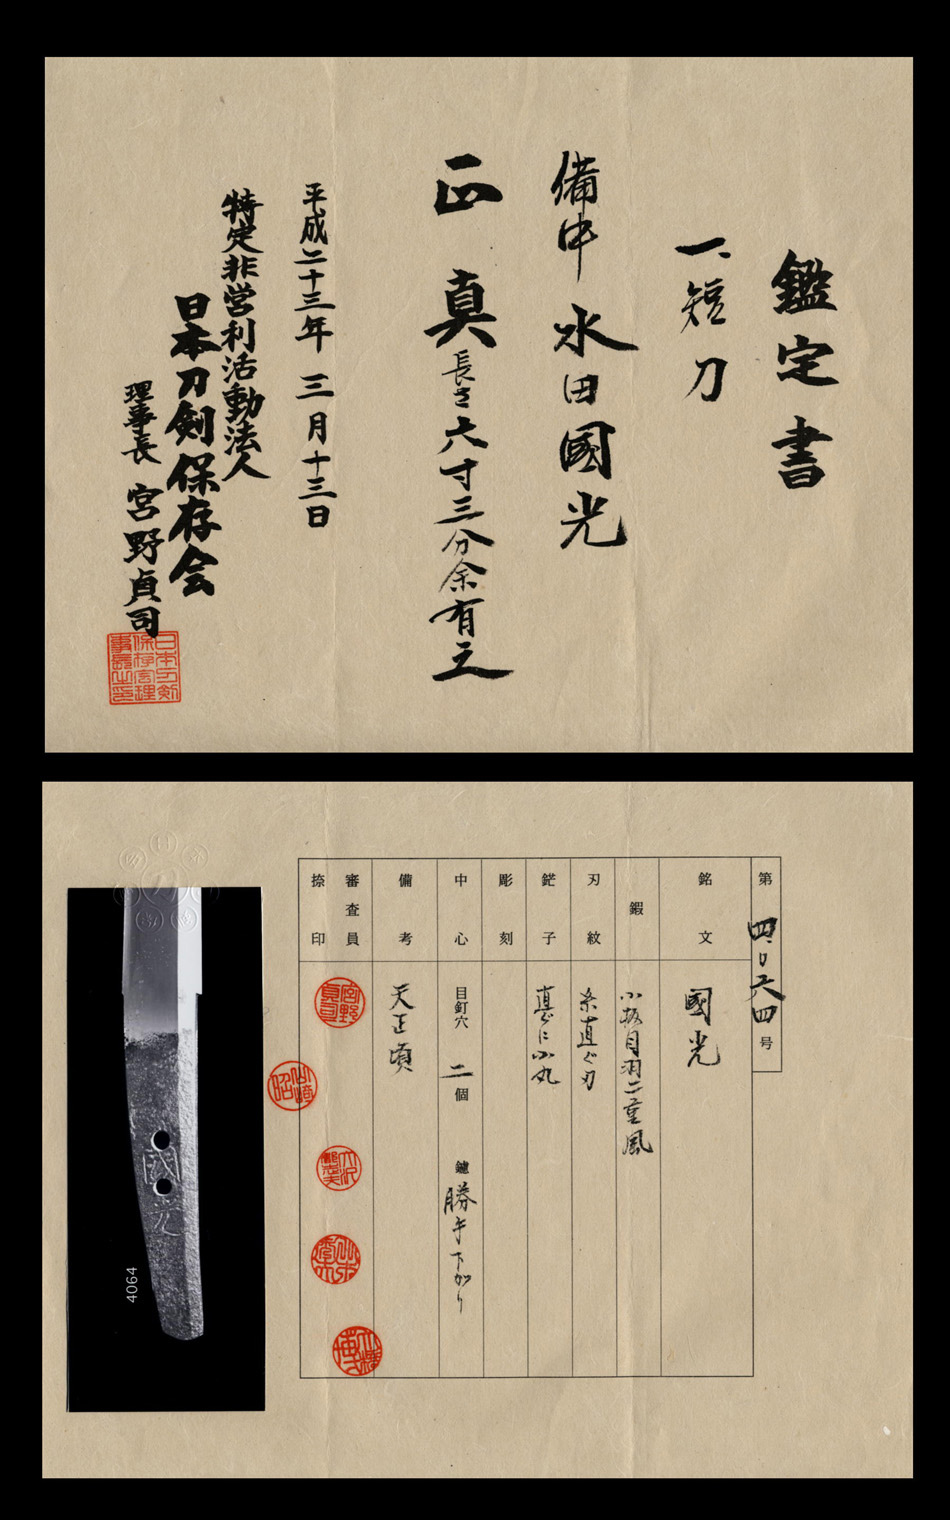 鑑定書
一、短刀
備中 水田國光
正真 長さ六寸三分余有之
平成二十三年三月十三日
特定非営利活動法人
日本刀剣保存会
理事長 宮野貞司
日本刀剣保存会理事長之印
第四〇六四号
銘文
國光
鍜
小板目羽二重風
刃紋
糸直ぐ刃
鋩子
直ぐに小丸
彫刻
中心
目釘穴 二個 鑢 勝手下がり
備考
天正頃
審査員
捺印
宮野貞司
國光
4064